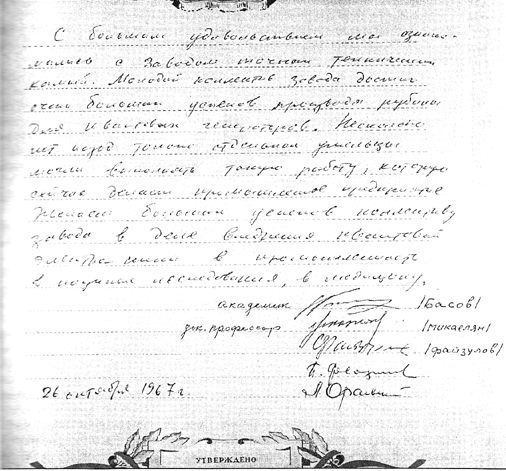 С большим удовольствием мы ознако-
мились с Заводом точных технических
камней. Молодой коллектив завода достиг
очень больших успехов производя рубины
для квантовых генераторов. Несколько
лет назад только отдельные умельцы
могли выполнять такую работу, которую
сейчас делает промышленное предприятие
Желаем больших успехов коллективу
завода в деле внедрения квантовой
электроники в промышленность
в научные исследования, в медицину.
академик /Басов/
профессор /Микаелян/
/Файзулов/
26 октября 1967 г.
УТВЕРЖДЕНО